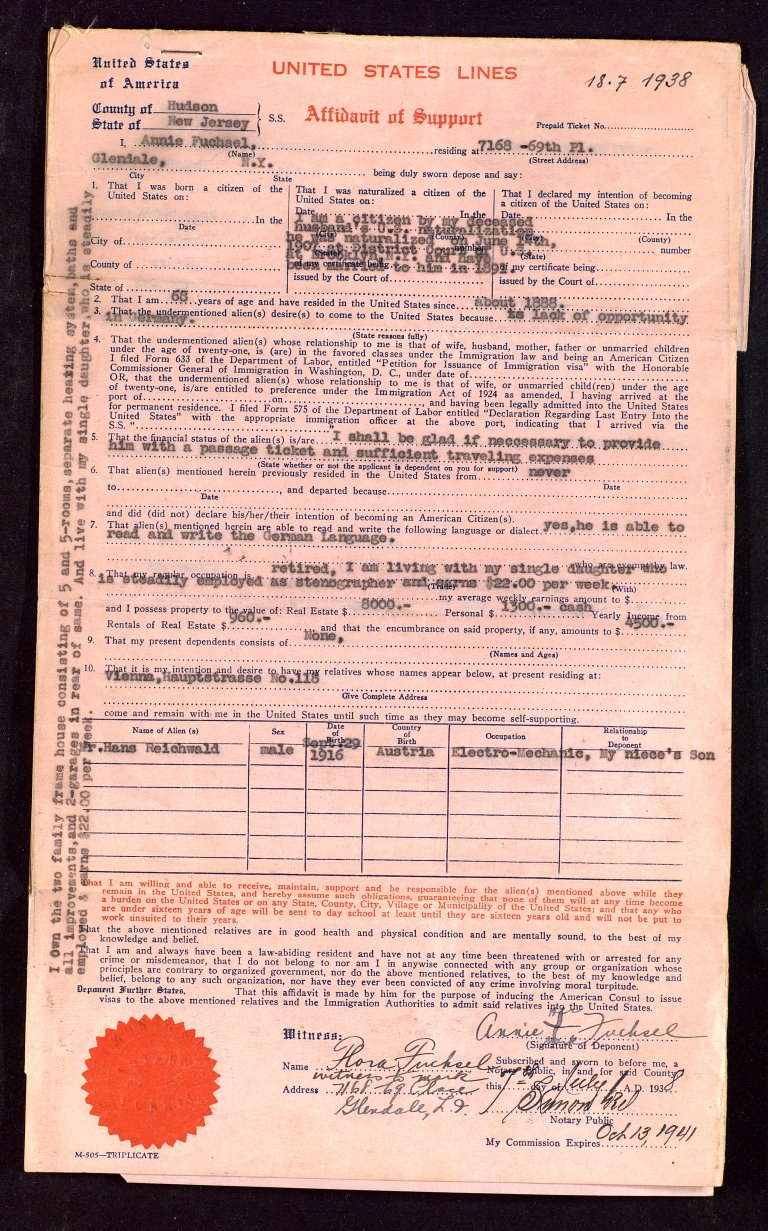 United States
of America
UNITED STATES LINES
18.7 1938
County of Hudson
State of New Jersey
S.S.
Affidavit of Support
Prepaid Ticket No.
I, Annie Fuchsel, residing at 7168 -69th Pl.
(Name) (Street Address)
Glendale, N.Y. being duly sworn depose and say:
City State
1. That I was born a citizen of the United States on:
Date In the
City of
County of
State of
That I was naturalized a citizen of the United States on:
Date In the
I am a citizen by my deceased
husband's U.S. naturalization
he was naturalized on June
1904 at District Court U.S.
at N.Y. and have
been married to him in
(City) (County)
(State) number
of my certificate being
issued by the Court of
That I declared my intention of becoming a citizen of the United States on:
Date In the
(City) (County)
(State) number
of my certificate being
issued by the Court of
2. That I am 68 years of age and have resided in the United States since about 1888.
3. That the undermentioned alien(s) desire(s) to come to the United States because is lack of opportunity
in Germany.
(State reasons fully)
4. That the undermentioned alien(s) whose relationship to me is that of wife, husband, mother, father or unmarried children
under the age of twenty-one, is (are) in the favored classes under the Immigration law and being an American Citizen
I filed Form 633 of the Department of Labor, entitled "Petition for Issuance of Immigration visa" with the Honorable
Commissioner General of Immigration in Washington, D. C., under date of
OR, that the undermentioned alien(s) whose relationship to me is that of wife, or unmarried child(ren) under the age
of twenty-one, is/are entitled to preference under the Immigration Act of 1924 as amended, I having arrived at the
port of on and having been legally admitted into the United States
for permanent residence. I filed Form 575 of the Department of Labor entitled "Declaration Regarding Last Entry Into the
United States" with the appropriate immigration officer at the above port, indicating that I arrived via the
S.S. " "
5. That the financial status of the alien(s) is/are I shall be glad if neccessary to provide
him with a passage ticket and sufficient traveling expenses
(State whether or not the applicant is dependent on you for support)
6. That alien(s) mentioned herein previously resided in the United States from never
Date
to , and departed because
Date
and did (did not) declare his/her/their intention of becoming an American Citizen(s).
7. That alien(s) mentioned herein are able to read and write the following language or dialect yes,he is able to
read and write the German Language.
who are exempt by law.
8. That my regular occupation is retired, I am living with my single daughter who
is steadily employed as stenographer and earns $22.00 per week.
(Trade) (With)
my average weekly earnings amount to $
and I possess property to the value of: Real Estate $ 8000.- Personal $ 1300.- cash Yearly Income from
Rentals of Real Estate $ 960.- and that the encumbrance on said property, if any, amounts to $ 4500.-
9. That my present dependents consists of None,
(Names and Ages)
10. That it is my intention and desire to have my relatives whose names appear below, at present residing at:
Vienna,Hauptstrasse No.118
Give Complete Address
come and remain with me in the United States until such time as they may become self-supporting.
Name of Alien (s) Sex Date of Birth Country of Birth Occupation Relationship to Deponent
Mr.Hans Reichwald male Sept.29 1916 Austria Electro-Mechanic, My niece's Son
That I am willing and able to receive, maintain, support and be responsible for the alien(s) mentioned above while they
remain in the United States, and hereby assume such obligations, guaranteeing that none of them will at any time become
a burden on the United States or on any State, County, City, Village or Municipality of the United States; and that any who
are under sixteen years of age will be sent to day school at least until they are sixteen years old and will not be put to
work unsuited to their years.
That the above mentioned relatives are in good health and physical condition and are mentally sound, to the best of my
knowledge and belief.
That I am and always have been a law-abiding resident and have not at any time been threatened with or arrested for any
crime or misdemeanor, that I do not belong to nor am I in anywise connected with any group or organization whose
principles are contrary to organized government, nor do the above mentioned relatives, to the best of my knowledge and
belief, belong to any such organization, nor have they ever been convicted of any crime involving moral turpitude.
Deponent Further States, That this affidavit is made by him for the purpose of inducing the American Consul to issue
visas to the above mentioned relatives and the Immigration Authorities to admit said relatives into the United States.
Witness:
Annie Fuchsel
(Signature of Deponent)
Name Flora Fuchsel
witness to mark
Address 7168-69 Place
Glendale, L.I.
Subscribed and sworn to before me, a
Notary Public, in and for said County
this 7th day of July A.D. 1938
Notary Public
My Commission Expires Oct 13, 1941
M-505—TRIPLICATE
I Own the two family frame house consisting of 5 and 5-rooms,separate heating system,baths and
all improvements,and 2-garages in rear of same. And live with my single daughter,who is steadily
employed & earns $22.00 per week.